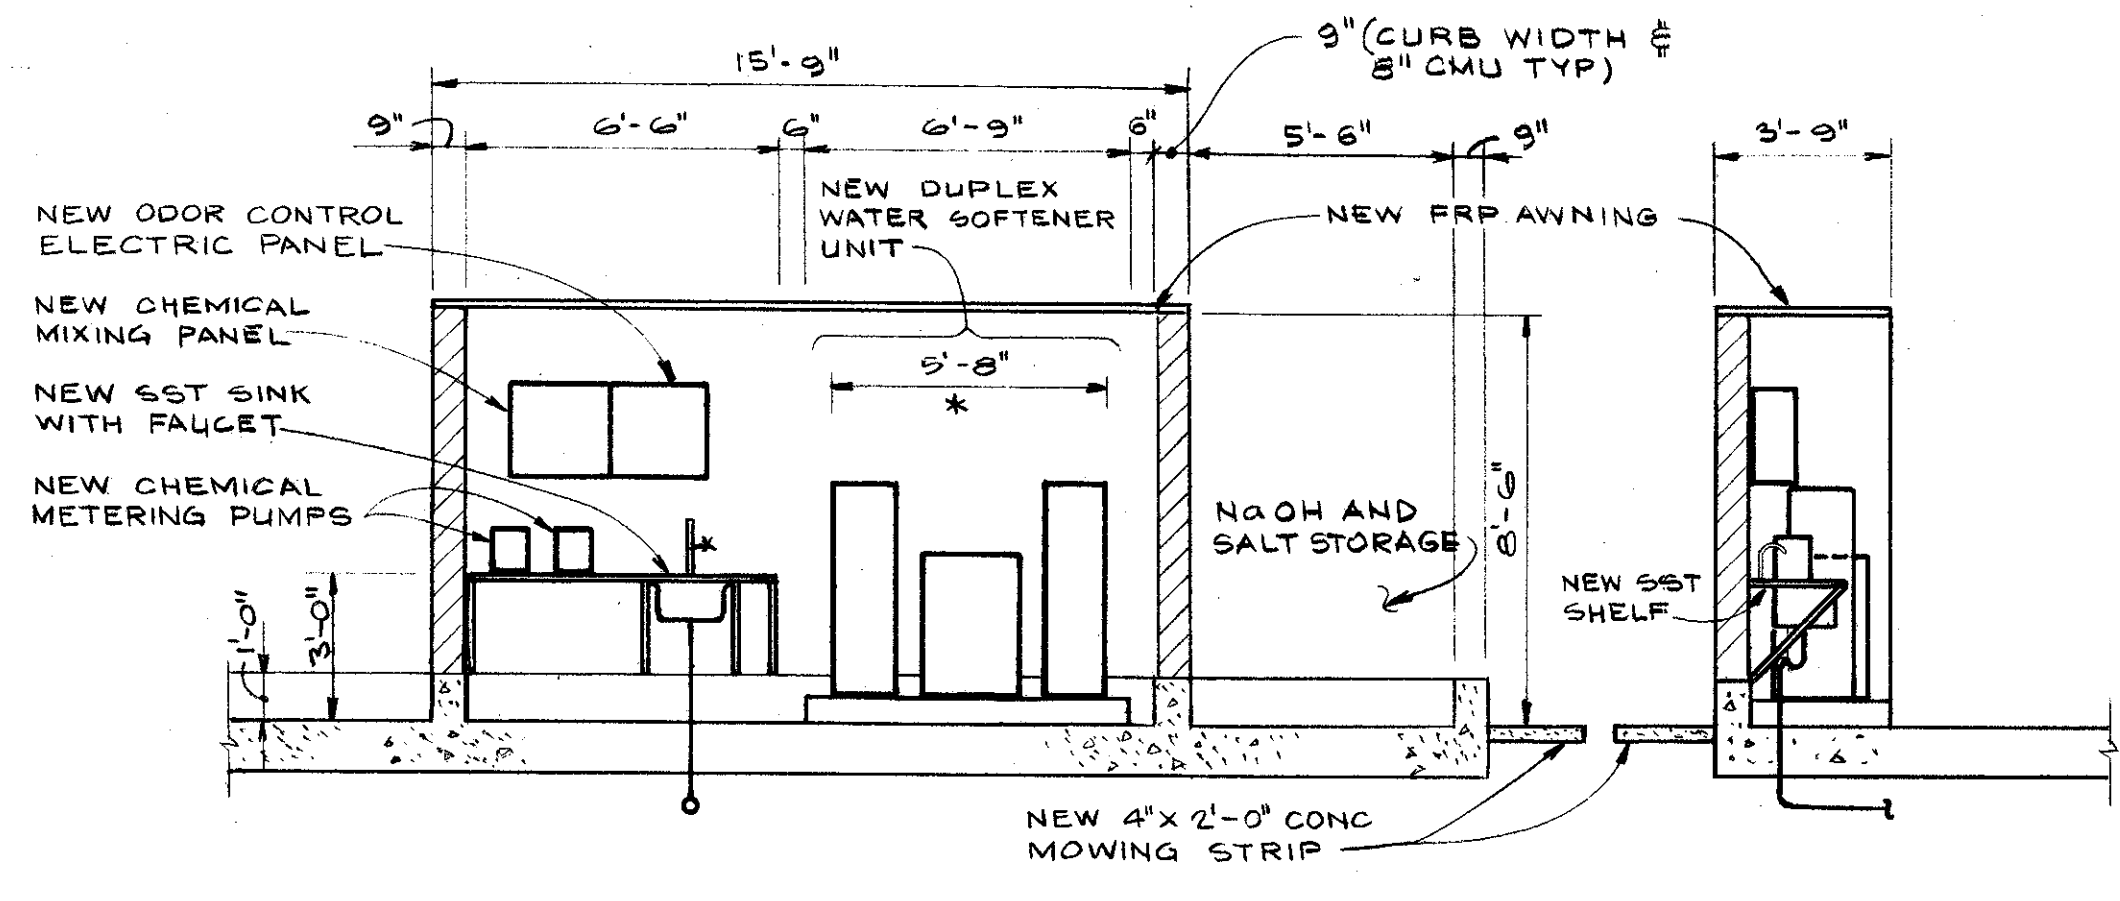 9" (CURB WIDTH &
8" CMU TYP)
15'-9"
9"
6'-6"
6"
6'-9"
6"
5'-6"
9"
3'-9"
NEW ODOR CONTROL
ELECTRIC PANEL
NEW DUPLEX
WATER SOFTENER
UNIT
NEW FRP AWNING
NEW CHEMICAL
MIXING PANEL
5'-8"
*
NEW SST SINK
WITH FAUCET
NEW CHEMICAL
METERING PUMPS
*
NaOH AND
SALT STORAGE
8'-6"
NEW SST
SHELF
1'-0"
3'-0"
NEW 4" X 2'-0" CONC
MOWING STRIP